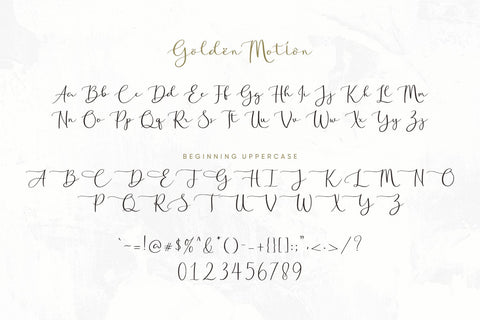 Golden Motion
Aa Bb Cc Dd Ee Ff Gg Hh Ii Jj Kk Ll Mm
Nn Oo Pp Qq Rr Ss Tt Uu Vv Ww Xx Yy Zz
BEGINNING UPPERCASE
A B C D E F G H I J K L M N O
P Q R S T U V W X Y Z
`~=!@#$%^&*()-_+{}[]:;"'<.>/?
0123456789